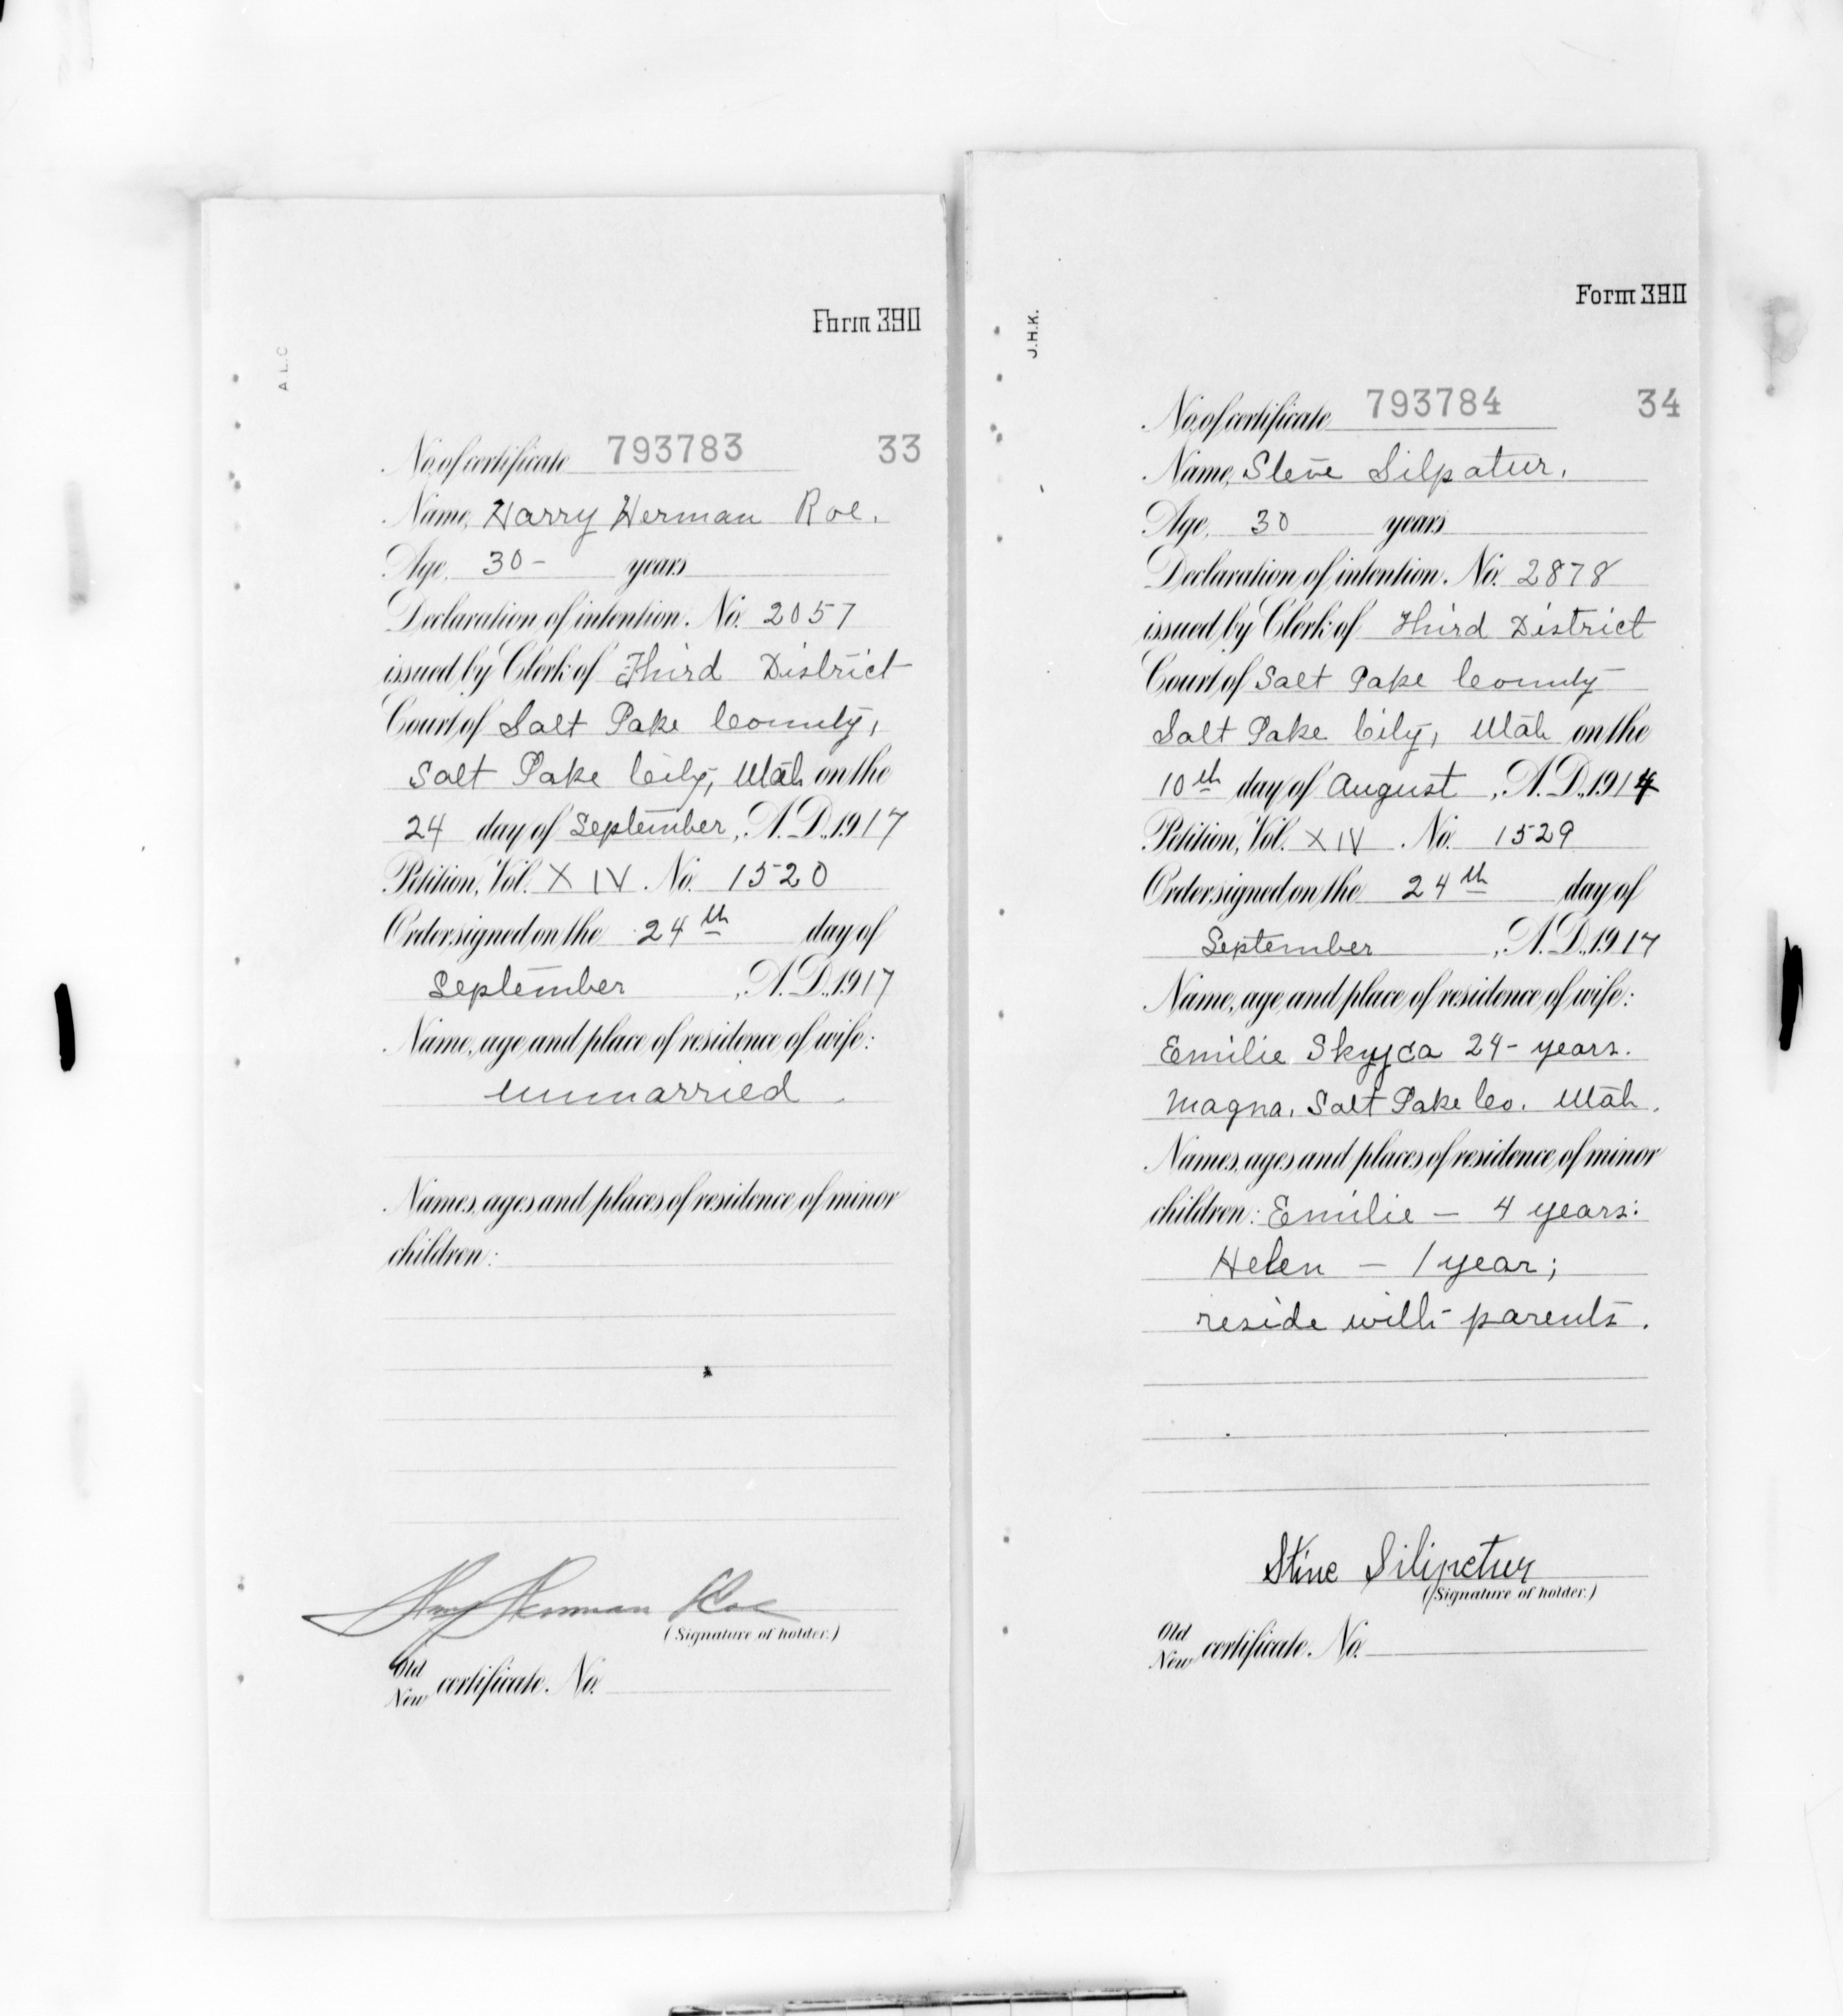 Form 390
A.L.C
No. of certificate 793783 33
Name, Harry Herman Roe.
Age, 30 - years
Declaration of intention. No. 2057
issued by Clerk of Third District
Court of Salt Lake County,
Salt Lake City, Utah on the
24 day of September, A.D. 1917
Petition, Vol. XIV. No. 1520
Order signed on the 24th day of
September, A.D. 1917
Name, age and place of residence of wife:
Unmarried.
Names, ages and places of residence of minor
children:
Harry Herman Roe
(Signature of holder.)
Old
New certificate. No.
Form 390
J.H.K.
No. of certificate 793784 34
Name, Steve Silpatur.
Age, 30 years
Declaration of intention. No. 2878
issued by Clerk of Third District
Court of Salt Lake County
Salt Lake City, Utah on the
10th day of August, A.D. 1914
Petition, Vol. XIV. No. 1529
Order signed on the 24th day of
September, A.D. 1917
Name, age and place of residence of wife:
Emilie 24 - years.
Magna, Salt Lake Co. Utah.
Names, ages and places of residence of minor
children: Emilie — 4 years:
Helen — 1 year;
reside with parents.
(Signature of holder.)
Old
New certificate. No.